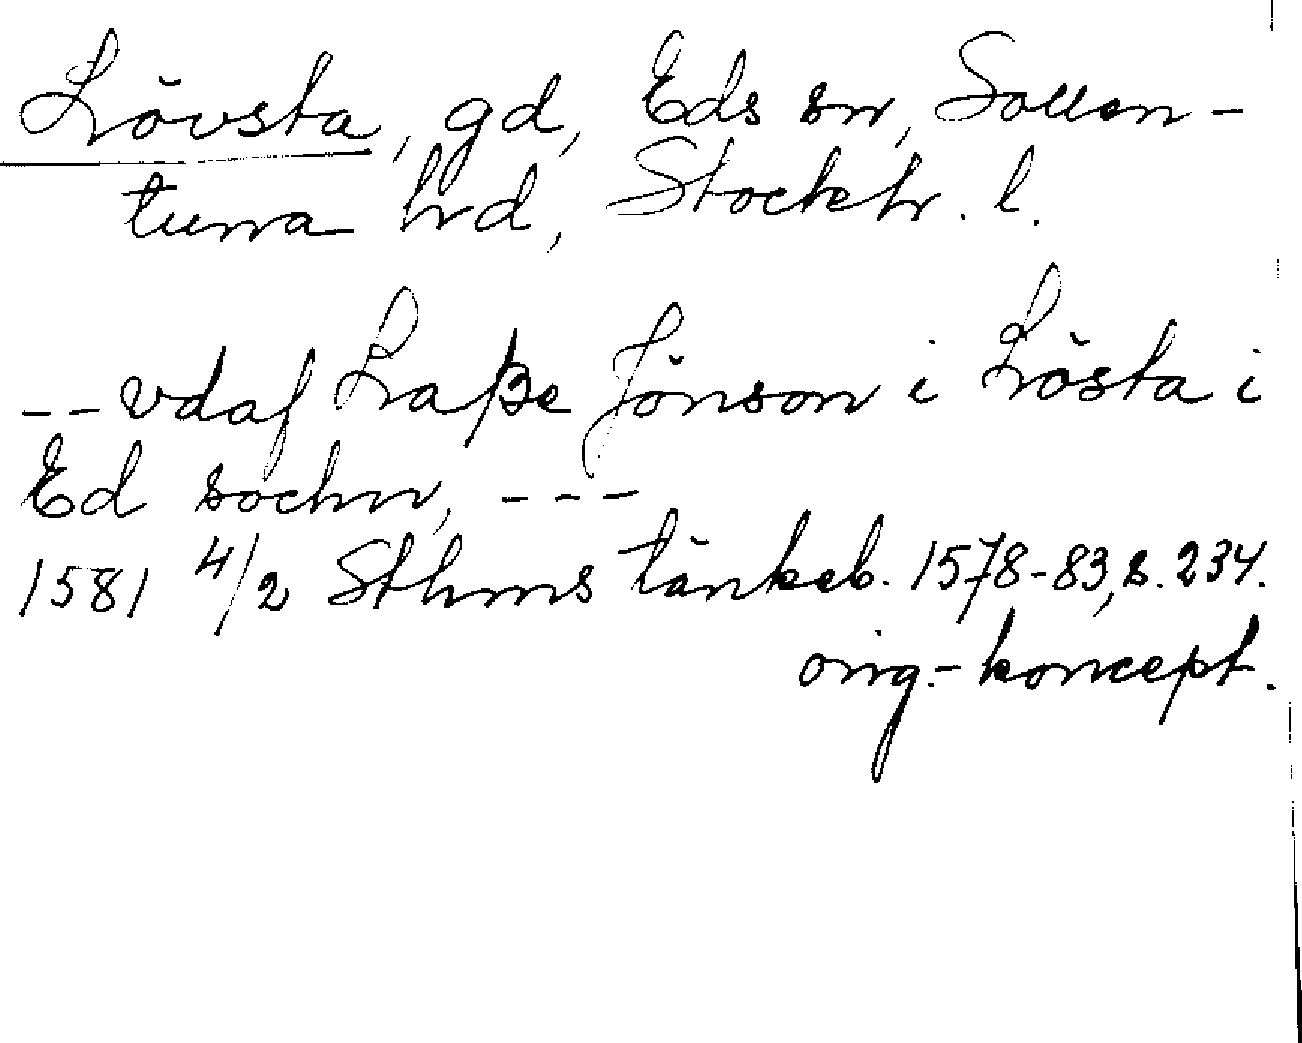 Lövsta, gd, Eds sn, Sollen-
tuna hrd, Stockh. l.
-- vdaf Laße Jönson i Lösta i
Ed sochn, ---
1581 4/2 Sthms tänkeb. 1578-83, s. 234.
orig.-koncept.